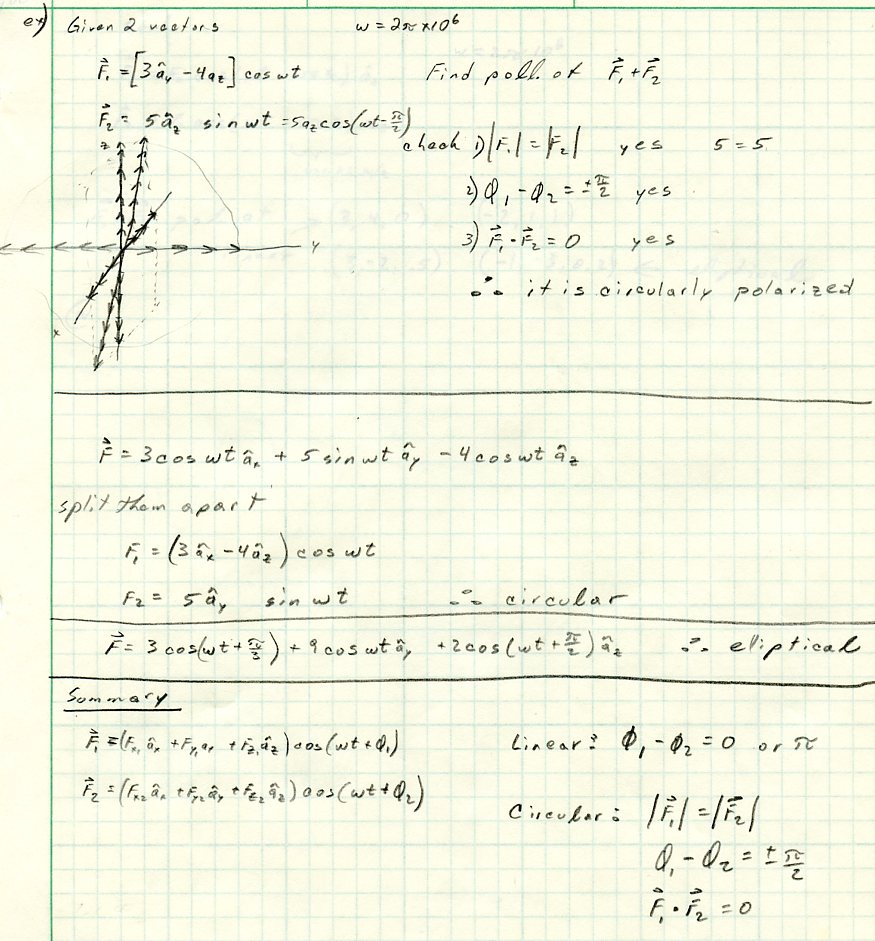 ex) Given 2 vectors   w = 2π×10⁶
F⃗₁ = [3â_y − 4a_z] cos wt   Find poll. of F⃗₁ + F⃗₂
F⃗₂ = 5â_z sin wt = 5a_z cos(wt − π/2)
check 1) |F⃗₁| = |F⃗₂|   yes   5 = 5
2) Φ₁ − Φ₂ = ± π/2   yes
3) F⃗₁ · F⃗₂ = 0   yes
∴ it is circularly polarized
z
y
x
F⃗ = 3 cos wt â_x + 5 sin wt â_y − 4 cos wt â_z
split them apart
F₁ = (3â_x − 4â_z) cos wt
F₂ = 5â_y sin wt   ∴ circular
F⃗ = 3 cos(wt + π/3) + 9 cos wt â_y + 2 cos(wt + π/2) â_z   ∴ eliptical
Summary
F⃗₁ = (F_x₁ â_x + F_y₁ a_x + F_z₁ â_z) cos(wt + Φ₁)   Linear: Φ₁ − Φ₂ = 0 or π
F⃗₂ = (F_x2 â_x + F_y2 â_y + F_z2 â_z) cos(wt + Φ₂)
Circular: |F⃗₁| = |F⃗₂|
Φ₁ − Φ₂ = ± π/2
F⃗₁ · F⃗₂ = 0